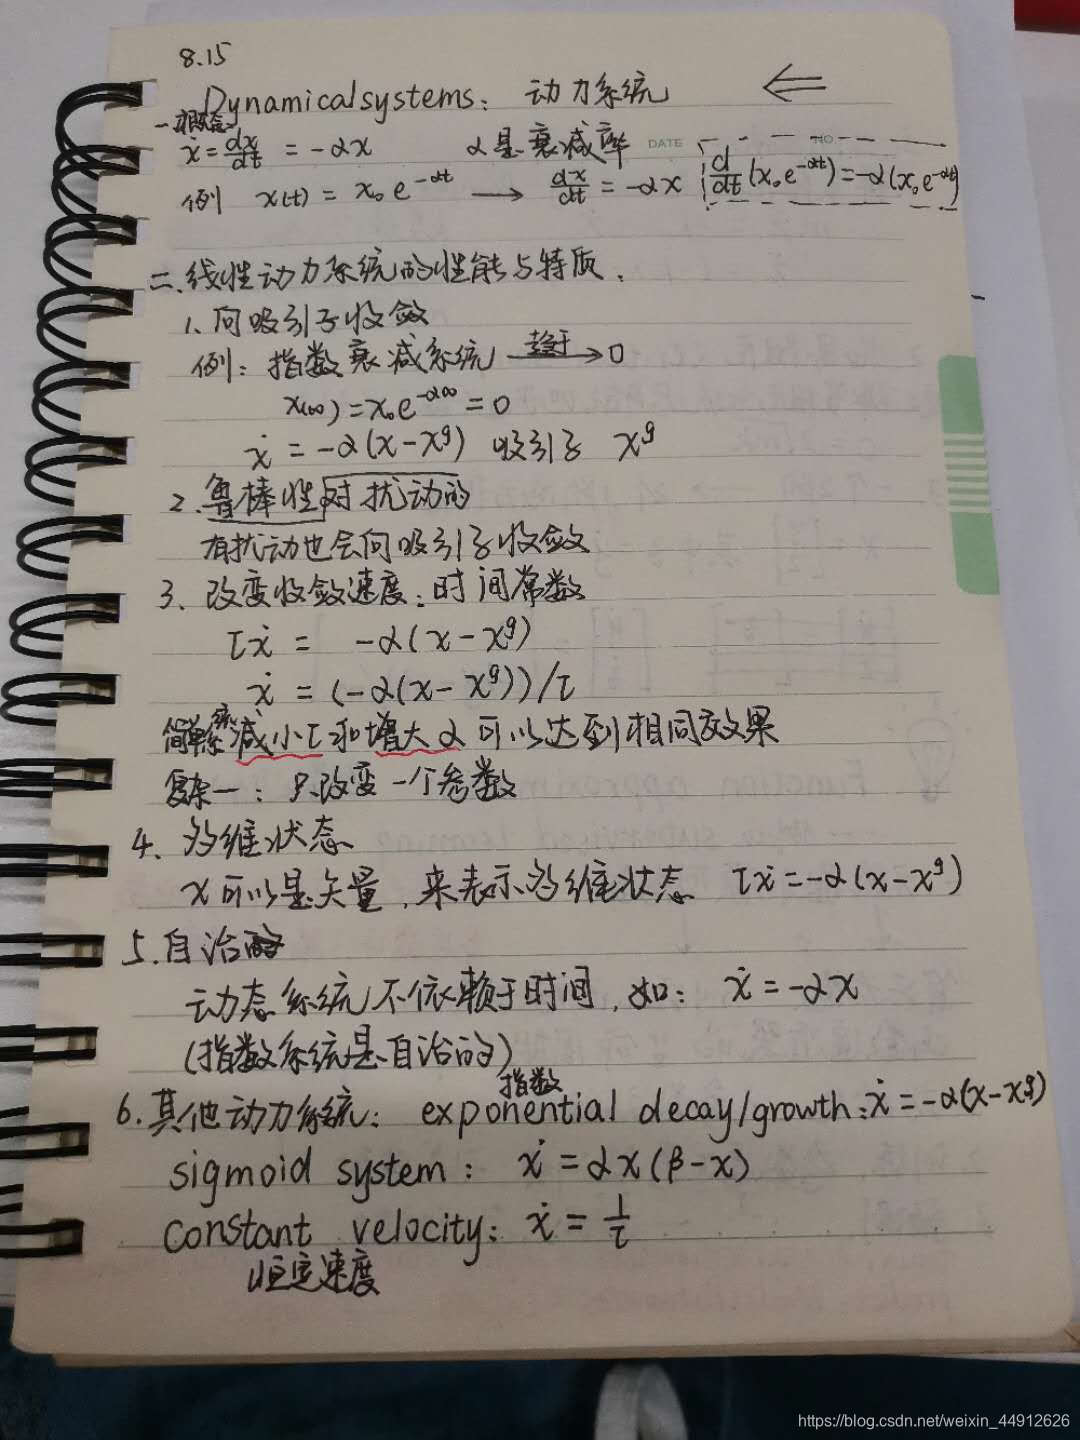 8.15
Dynamical systems: 动力系统
一.概念
ẋ = dx/dt = -αx α是衰减率 DATE NO
例 x(t) = x₀e^(-αt) → dx/dt = -αx d/dt(x₀e^(-αt)) = -α(x₀e^(-αt))
二.线性动力系统的性能与特质.
1、向吸引子收敛
例: 指数衰减系统 趋于→ 0
x(∞) = x₀e^(-α∞) = 0
ẋ = -α(x-x^g) 吸引子 x^g
2.鲁棒性对扰动的
有扰动也会向吸引子收敛
3、改变收敛速度:时间常数
τẋ = -α(x-x^g)
ẋ = (-α(x-x^g))/τ
简单系统减小τ和增大α可以达到相同效果
复杂一: 只改变一个参数
4、多维状态
x可以是矢量,来表示多维状态 τẋ=-α(x-x^g)
5.自治
动态系统不依赖于时间,如: ẋ=-αx
(指数系统是自治的)
指数
6.其他动力系统: exponential decay/growth: ẋ=-α(x-x^g)
sigmoid system: ẋ=αx(β-x)
constant velocity: ẋ=1/τ
恒定速度
https://blog.csdn.net/weixin_44912626